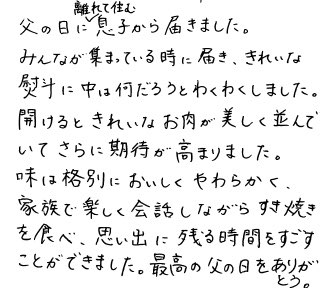 離れて住む
父の日に息子から届きました。
みんなが集まっている時に届き、きれいな
熨斗に中は何だろうとわくわくしました。
開けるときれいなお肉が美しく並んで
いてさらに期待が高まりました。
味は格別においしくやわらかく、
家族で楽しく会話しながらすき焼き
を食べ、思い出に残る時間をすごす
ことができました。最高の父の日をありが
とう。